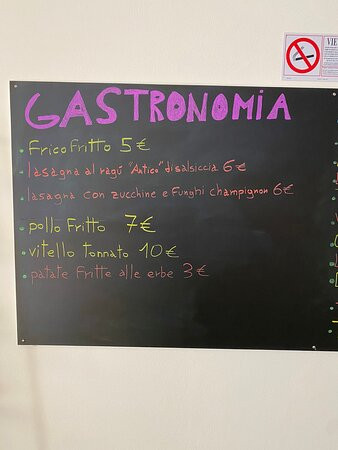 VIE
GASTRONOMIA
Frico Fritto 5€
lasagna al ragú "Antico" di salsiccia 6€
lasagna con zucchine e Funghi champignon 6€
pollo Fritto 7€
vitello tonnato 10€
patate Fritte alle erbe 3€